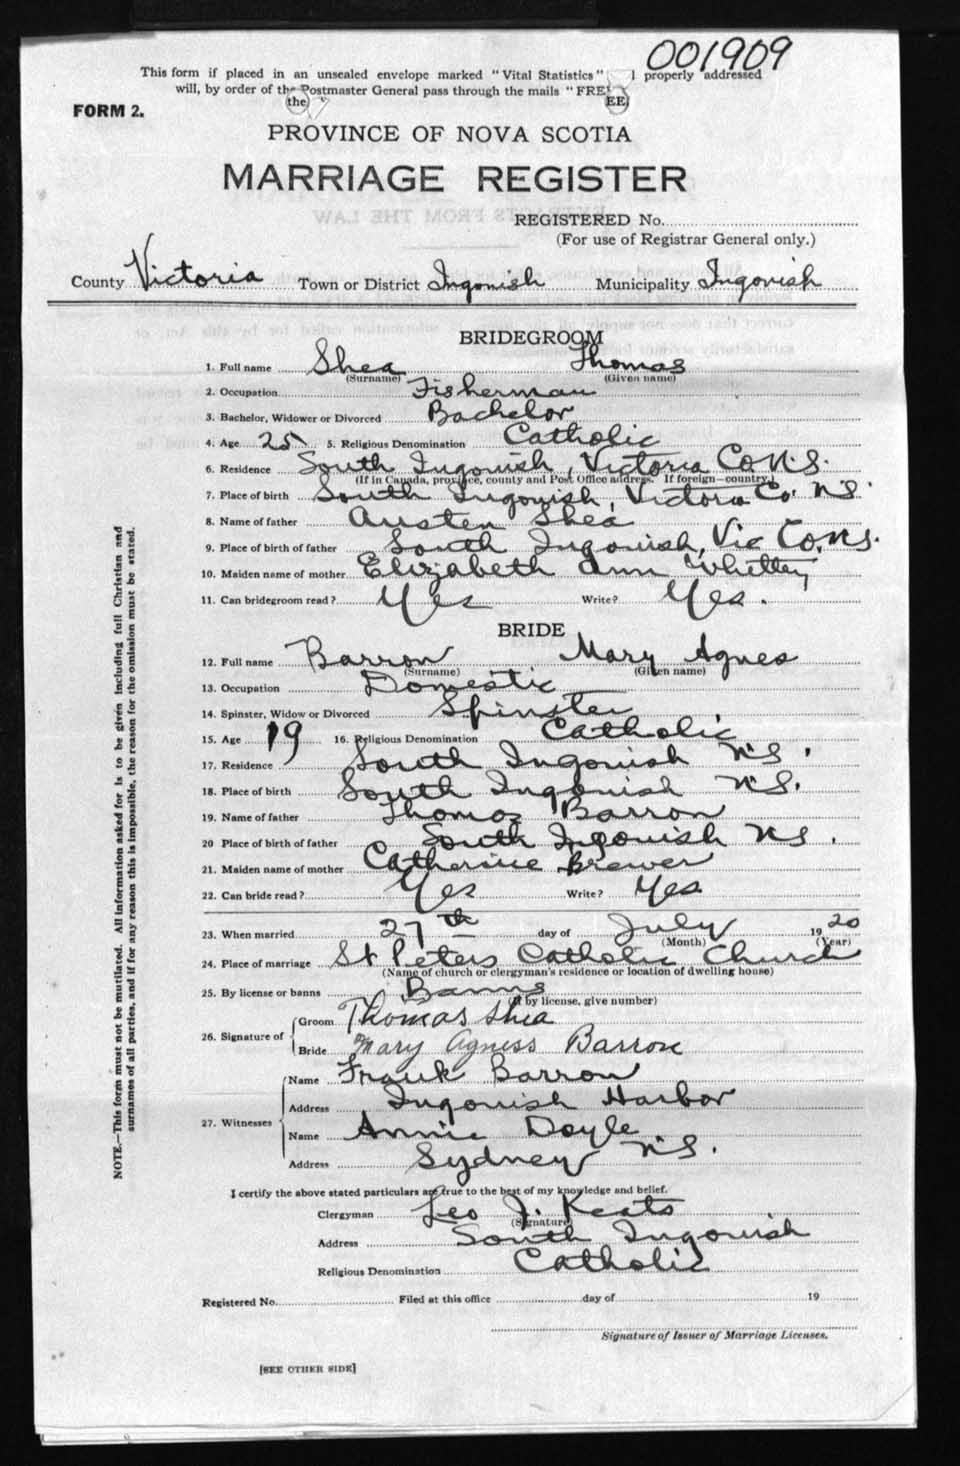 001909
This form if placed in an unsealed envelope marked "Vital Statistics" properly addressed
will, by order of the Postmaster General pass through the mails "FREE
the EE
FORM 2.
PROVINCE OF NOVA SCOTIA
MARRIAGE REGISTER
REGISTERED No.
(For use of Registrar General only.)
County Victoria Town or District Ingonish Municipality Ingonish
BRIDEGROOM
1. Full name Shea Thomas
(Surname) (Given name)
2. Occupation Fisherman
3. Bachelor, Widower or Divorced Bachelor
4. Age 25 5. Religious Denomination Catholic
6. Residence South Ingonish, Victoria Co N.S.
(If in Canada, province, county and Post Office address. If foreign—country.)
7. Place of birth South Ingonish, Victoria Co. N.S.
8. Name of father Austen Shea
9. Place of birth of father South Ingonish, Vic Co, N.S.
10. Maiden name of mother Elizabeth Ann Whitty
11. Can bridegroom read? Yes Write? Yes.
BRIDE
12. Full name Barron Mary Agnes
(Surname) (Given name)
13. Occupation Domestic
14. Spinster, Widow or Divorced Spinster
15. Age 19 16. Religious Denomination Catholic
17. Residence South Ingonish N.S.
18. Place of birth South Ingonish N.S.
19. Name of father Thomas Barron
20 Place of birth of father South Ingonish N.S.
21. Maiden name of mother Catherine Brewer
22. Can bride read? Yes Write? Yes
23. When married 27th day of July 1920
(Month) (Year)
24. Place of marriage St Peters Catholic Church
(Name of church or clergyman's residence or location of dwelling house)
25. By license or banns Banns
(If by license, give number)
26. Signature of Groom Thomas Shea
Bride Mary Agness Barron
27. Witnesses Name Frank Barron
Address Ingonish Harbor
Name Annie Doyle
Address Sydney N.S.
I certify the above stated particulars are true to the best of my knowledge and belief.
Clergyman Leo J. Keats
(Signature)
Address South Ingonish
Religious Denomination Catholic
Registered No. Filed at this office day of 19
Signature of Issuer of Marriage Licenses.
[SEE OTHER SIDE]
NOTE.—This form must not be mutilated. All information asked for is to be given including full Christian and
surnames of all parties, and if for any reason this is impossible, the reason for the omission must be stated.